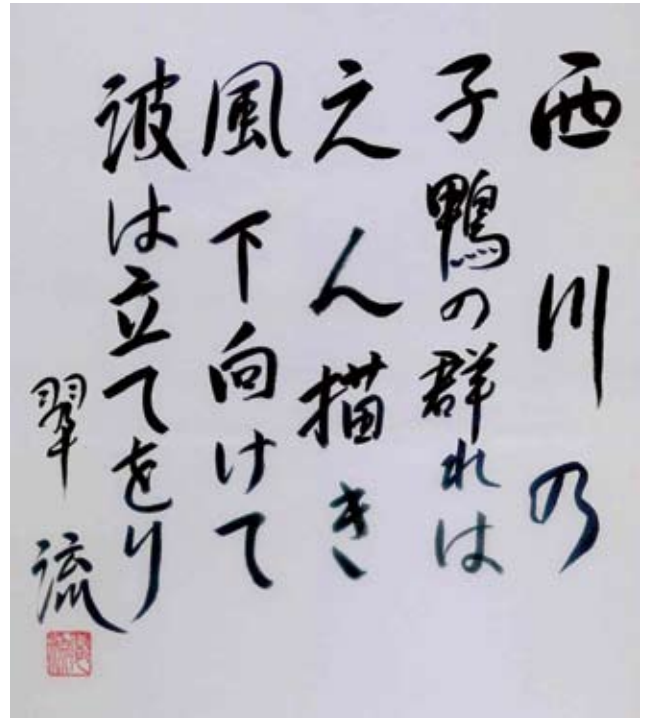 西川乃
子鴨の群れは
えん描き
風下向けて
波は立てをり
翠流